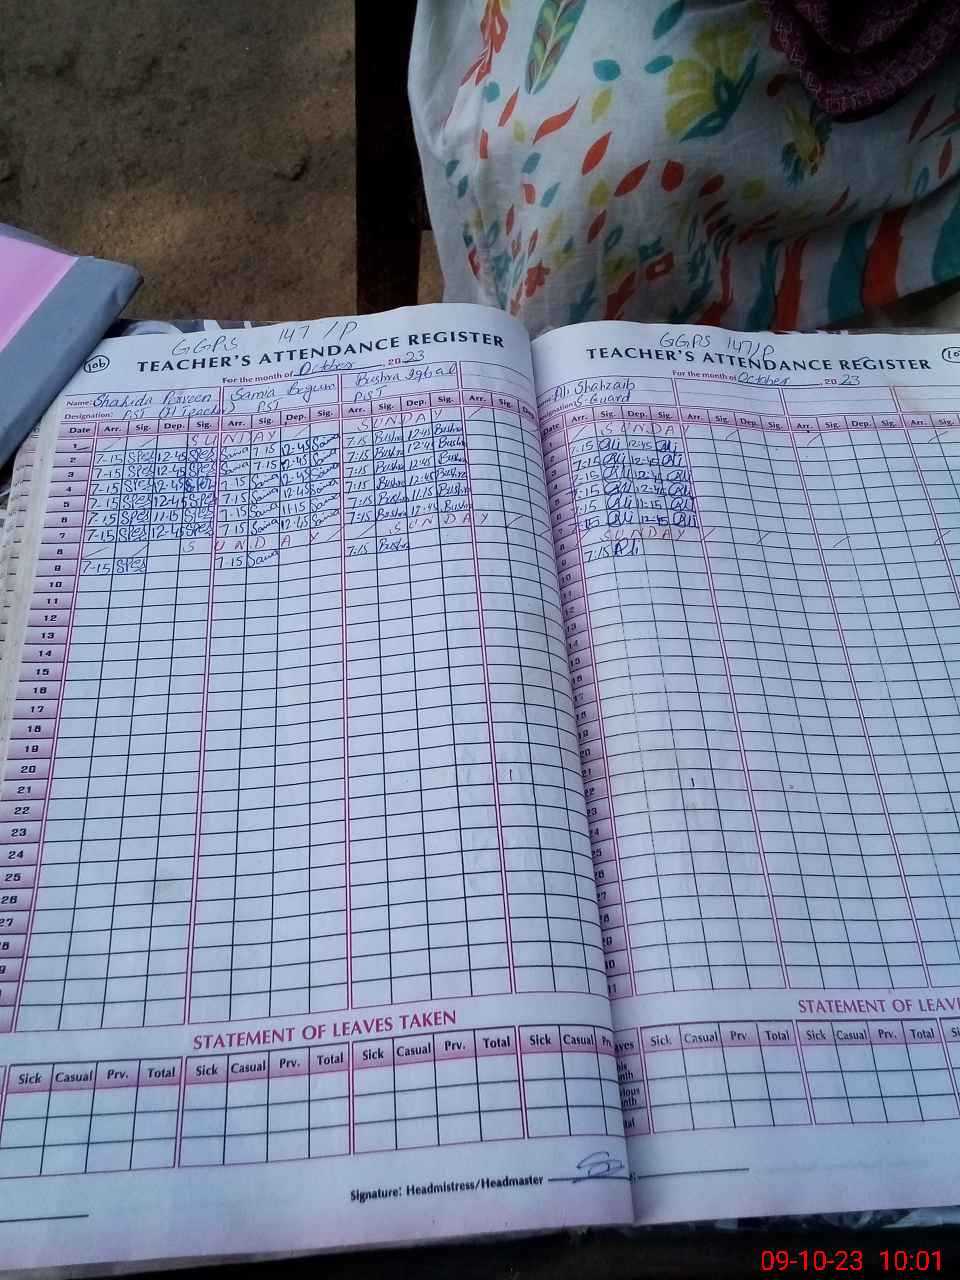 GGPS 147/P
106
TEACHER'S ATTENDANCE REGISTER
For the month of October, 2023
Name: Shahida Parveen Samia Begum Bushra Iqbal
Designation: PST (H Teacher) PST PST
Date Arr. Sig. Dep. Sig. Arr. Sig. Dep. Sig. Arr. Sig. Dep. Sig. Arr. Sig. Dep.
1 SUNDAY SUNDAY
2 7-15 12-45 7-15 12-45 7-15 Bushra 12-45 Bushra
3 7-15 12-45 7-15 12-45 7-15 Bushra 12-45 Bushra
4 7-15 12-45 7-15 12-45 7-15 Bushra 12-45 Bushra
5 7-15 12-45 7-15 12-45 7-15 Bushra 12-45 Bushra
6 7-15 11-15 7-15 11-15 7-15 Bushra 11-15 Bushra
7 7-15 12-45 7-15 12-45 7-15 Bushra 12-45 Bushra
8 SUNDAY SUNDAY
9 7-15 7-15 7-15 Bushra
10
11
12
13
14
15
16
17
18
19
20
21
22
23
24
25
26
27
STATEMENT OF LEAVES TAKEN
Sick Casual Prv. Total Sick Casual Prv. Total Sick Casual Prv. Total Sick Casual
Signature: Headmistress/Headmaster
GGPS 147/P
TEACHER'S ATTENDANCE REGISTER
For the month of October, 2023
Ali Shahzaib
S-Guard
Date Arr. Sig. Dep. Sig. Arr. Sig. Dep. Sig. Arr. Sig. Dep. Sig. Arr.
1 SUNDAY
2 7-15 Ali 12-45 Ali
3 7-15 Ali 12-45 Ali
4 7-15 Ali 12-45 Ali
5 7-15 Ali 12-45 Ali
6 7-15 Ali
7 7-15 Ali 12-45 Ali
8 SUNDAY
9 7:15 Ali
10
11
12
13
14
15
16
17
18
19
20
21
22
23
24
25
26
27
28
29
STATEMENT OF
Sick Casual Prv. Total Sick Casual Prv. Total
09-10-23 10:01